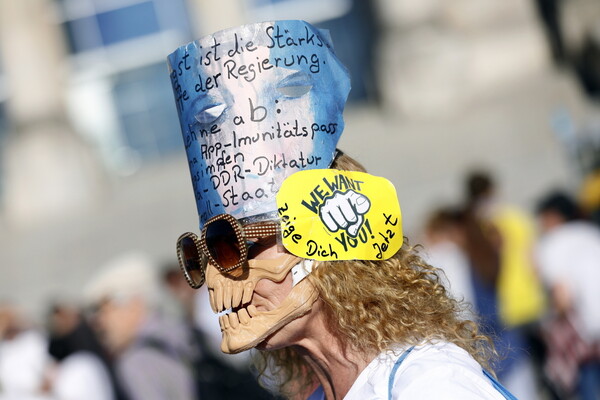 ist die Stärks
der Regierung.
ab:
App-Imunitätspass
DDR-Diktatur
Staat
WE WANT
YOU!
zeige Dich Jetzt